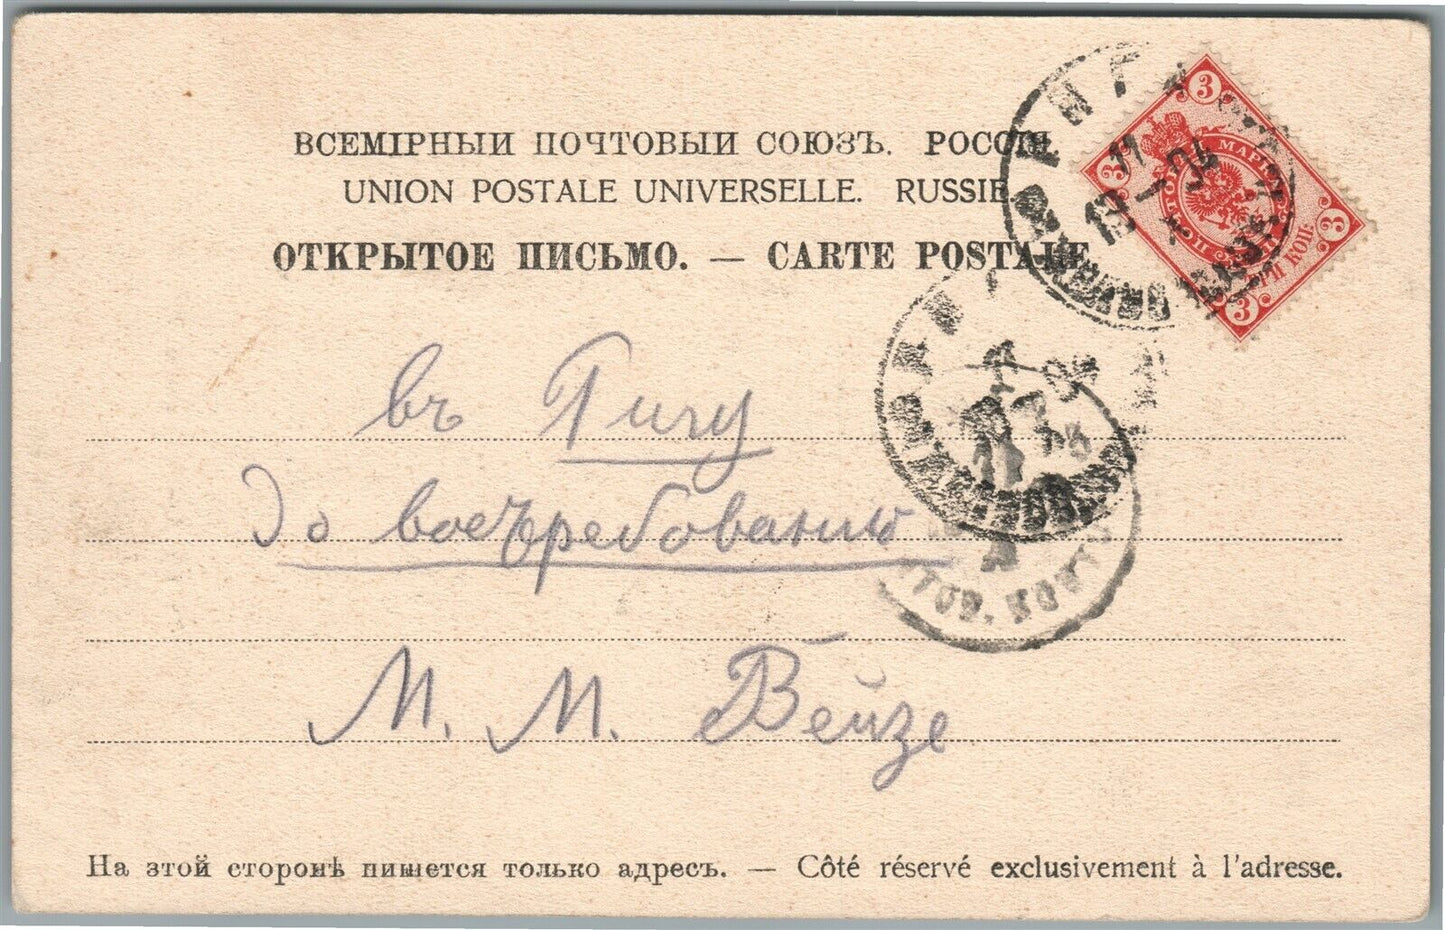 ВСЕМІРНЫЙ ПОЧТОВЫЙ СОЮЗЪ. РОССІЯ.
UNION POSTALE UNIVERSELLE. RUSSIE.
ОТКРЫТОЕ ПИСЬМО. — CARTE POSTALE
3
3
3
3
МАРКА
ТРИ КОП.
11
19 — 04
въ Ригу
до востребованію
М. М. Вейзе
На этой сторонѣ пишется только адресъ. — Côté réservé exclusivement à l'adresse.